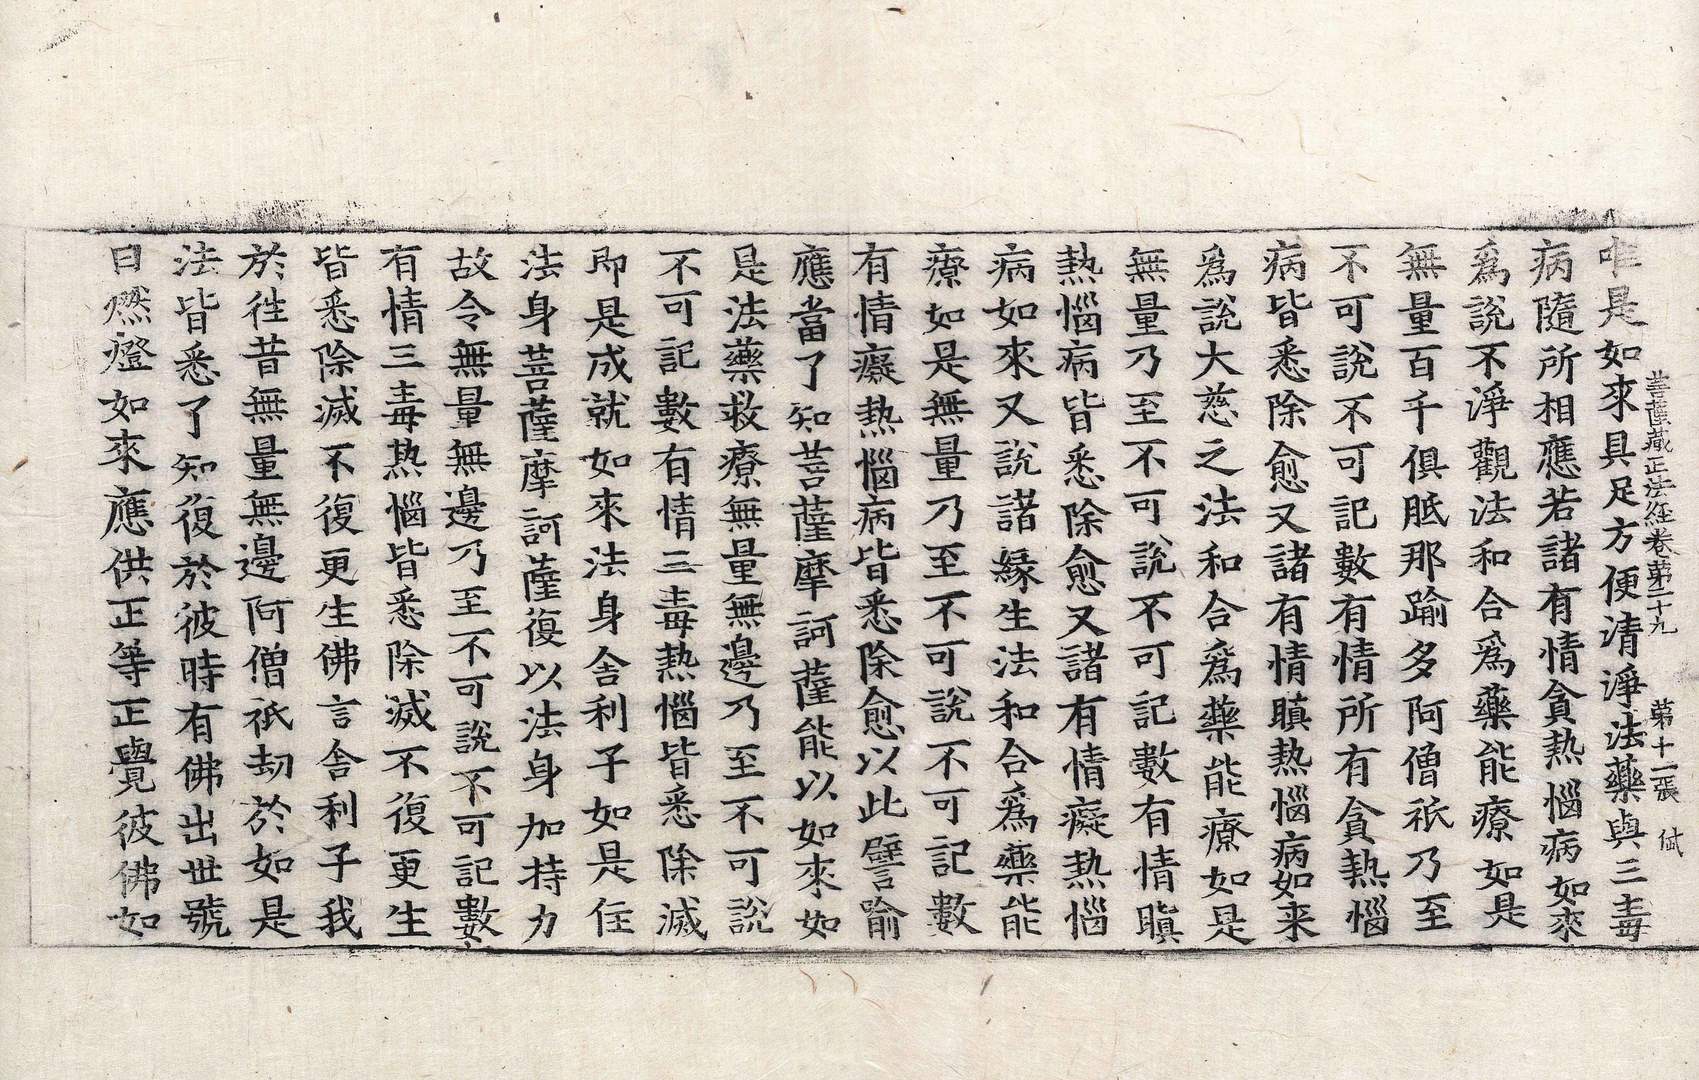 菩薩藏正法經卷第二十九　第十一張　俶
唯是如來具足方便清淨法藥與三毒
病隨所相應若諸有情貪熱惱病如來
爲說不淨觀法和合爲藥能療如是
無量百千俱胝那踰多阿僧祇乃至
不可說不可記數有情所有貪熱惱
病皆悉除愈又諸有情瞋熱惱病如来
爲說大慈之法和合爲藥能療如是
無量乃至不可說不可記數有情瞋
熱惱病皆悉除愈又諸有情癡熱惱
病如來又說諸緣生法和合爲藥能
療如是無量乃至不可說不可記數
有情癡熱惱病皆悉除愈以此譬喻
應當了知菩薩摩訶薩能以如來如
是法藥救療無量無邊乃至不可說
不可記數有情三毒熱惱皆悉除滅
即是成就如來法身舍利子如是住
法身菩薩摩訶薩復以法身加持力
故令無量無邊乃至不可說不可記數
有情三毒熱惱皆悉除滅不復更生
皆悉除滅不復更生佛言舍利子我
於往昔無量無邊阿僧祇劫於如是
法皆悉了知復於彼時有佛出世號
曰燃燈如來應供正等正覺彼佛如